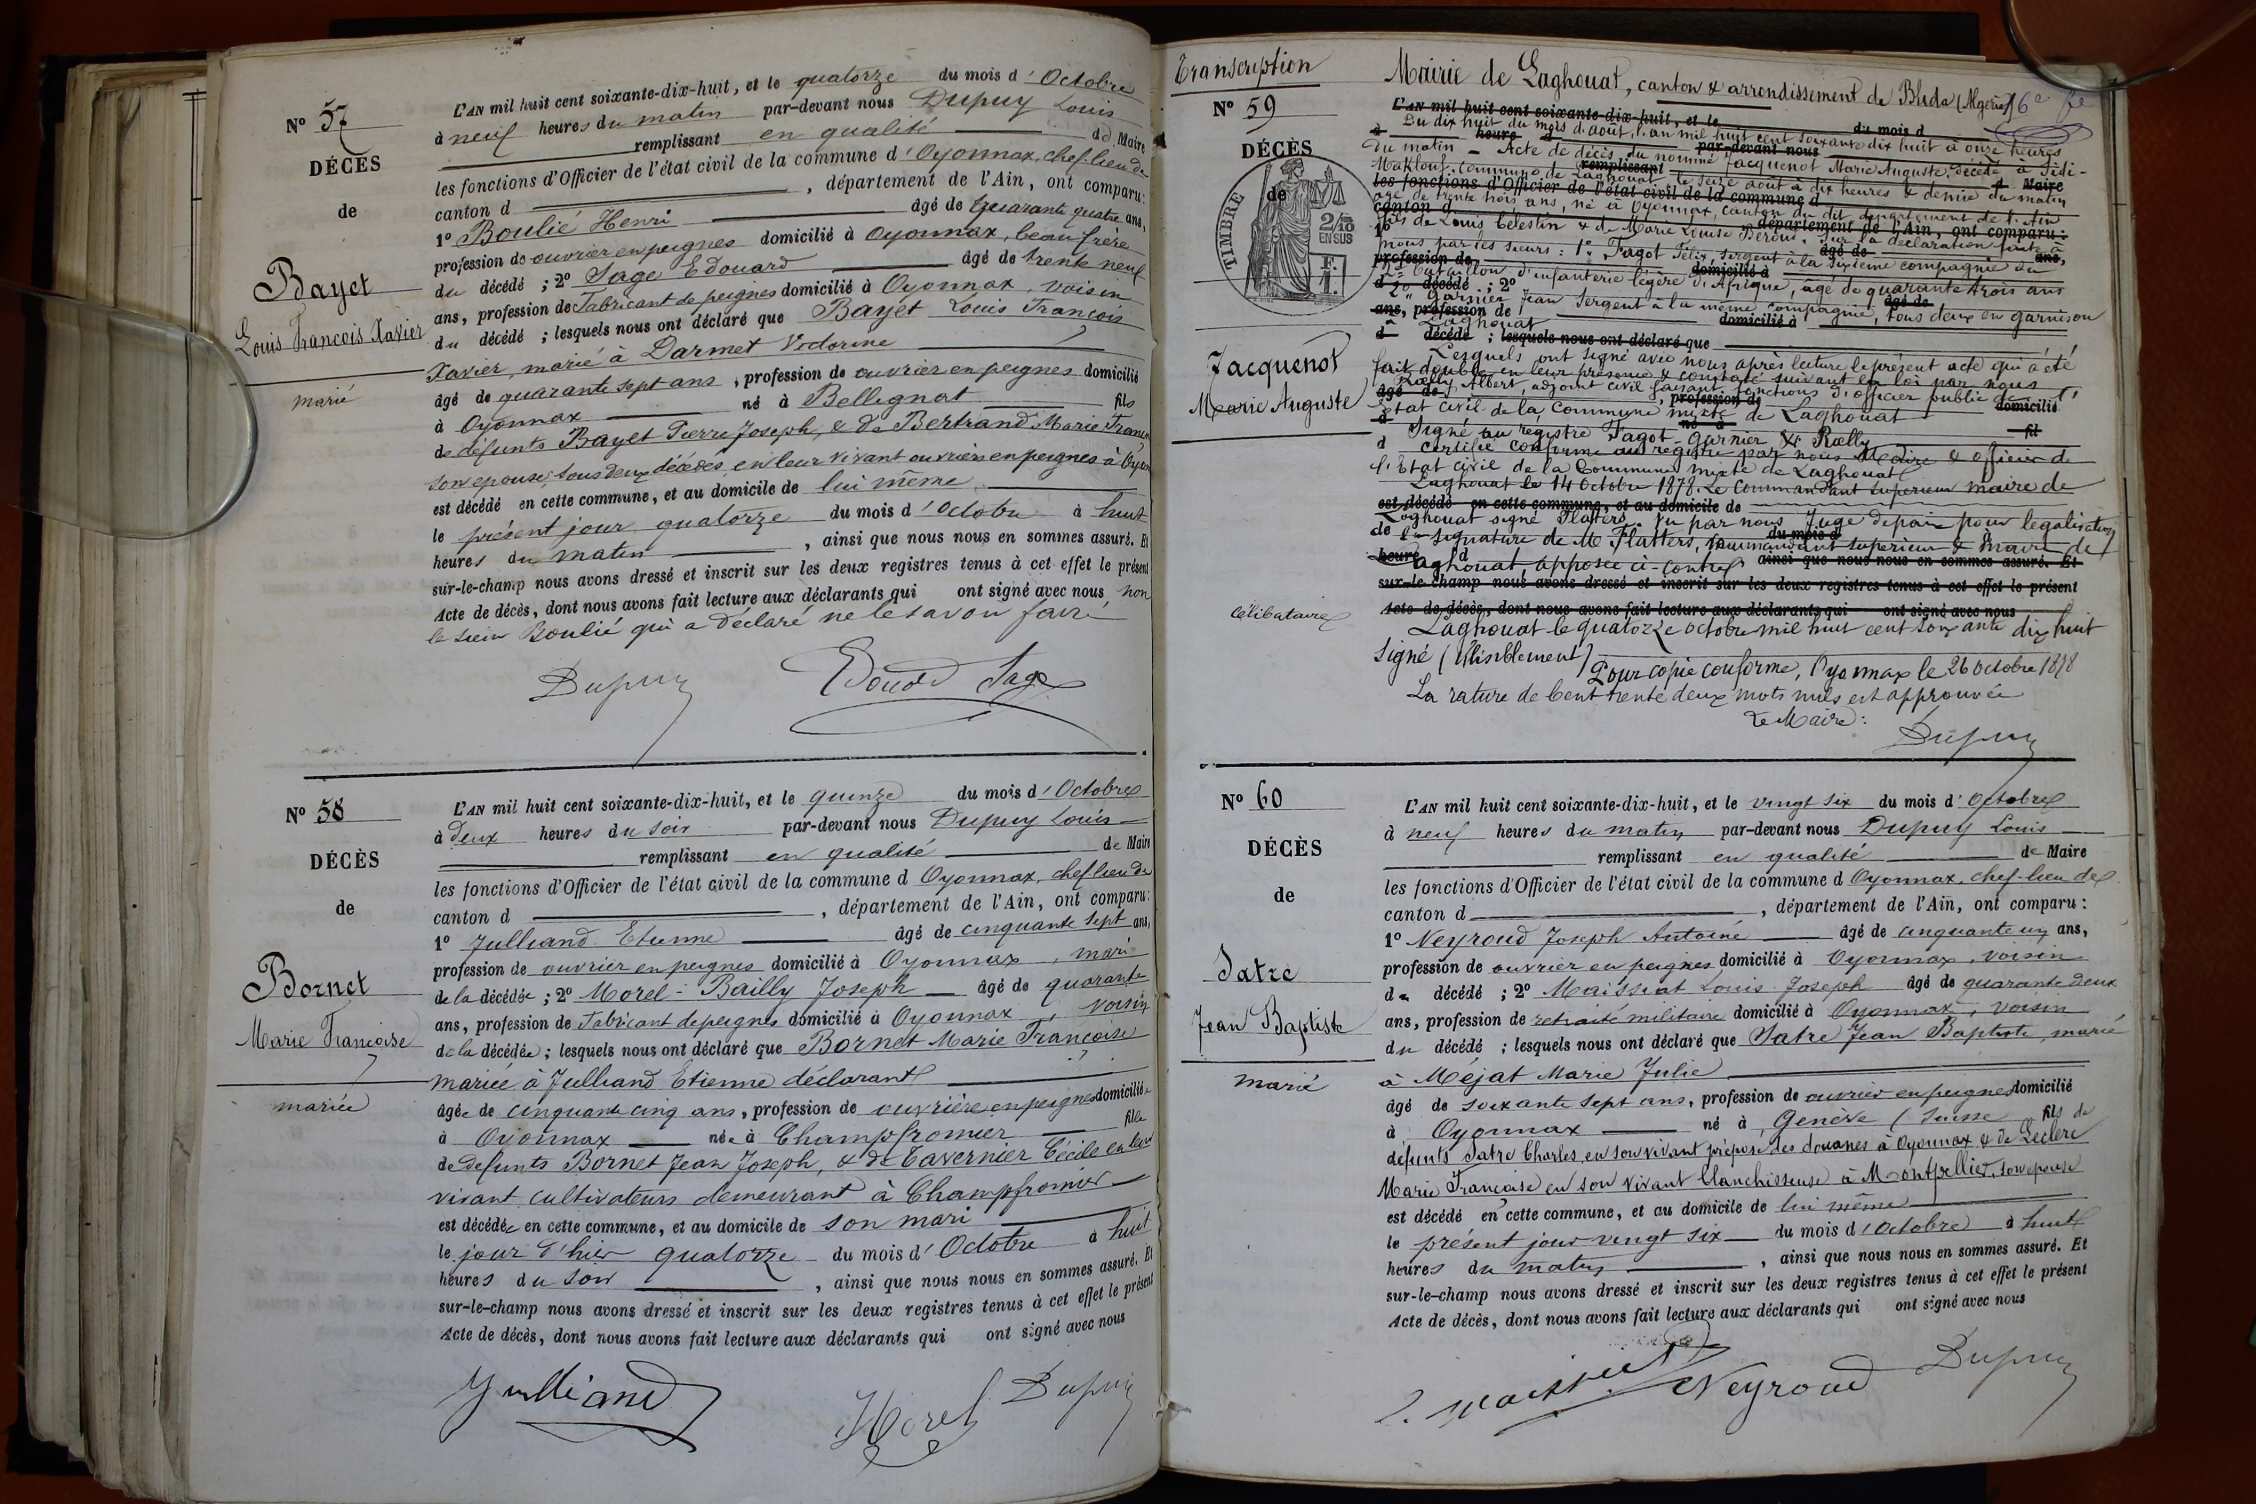 N° 57
DÉCÈS
de
Bayet
Louis François Xavier
marié
L'AN mil huit cent soixante-dix-huit, et le quatorze du mois d'Octobre
à neuf heures du matin par-devant nous Dupuy Louis
remplissant en qualité de Maire
les fonctions d'Officier de l'état civil de la commune d'Oyonnax, chef-lieu de
canton d , département de l'Ain, ont comparu:
1° Boulié Henri âgé de quarante quatre ans,
profession de ouvrier en peignes domicilié à Oyonnax, beau frère
du décédé ; 2° Sage Edouard âgé de trente neuf
ans, profession de Fabricant de peignes domicilié à Oyonnax, voisin
du décédé ; lesquels nous ont déclaré que Bayet Louis François
Xavier, marié à Darmet Victorine
âgé de quarante sept ans, profession de ouvrier en peignes domicilié
à Oyonnax né à Bellignat fils
de défunts Bayet Pierre Joseph, & de Bertrand Marie
son épouse, tous deux décédés en leur vivant ouvriers en peignes à
est décédé en cette commune, et au domicile de lui même
le présent jour quatorze du mois d'Octobre à huit
heures du matin , ainsi que nous nous en sommes assuré. Et
sur-le-champ nous avons dressé et inscrit sur les deux registres tenus à cet effet le présent
Acte de décès, dont nous avons fait lecture aux déclarants qui ont signé avec nous non
le sieur Boulié qui a déclaré ne le savoir faire
Dupuy Edouard Sage
N° 58
DÉCÈS
de
Bornet
Marie Françoise
mariée
L'AN mil huit cent soixante-dix-huit, et le quinze du mois d'Octobre
à deux heures du soir par-devant nous Dupuy Louis
remplissant en qualité de Maire
les fonctions d'Officier de l'état civil de la commune d Oyonnax, chef lieu de
canton d , département de l'Ain, ont comparu:
1° Julliand Etienne âgé de cinquante sept ans,
profession de ouvrier en peignes domicilié à Oyonnax, mari
de la décédée ; 2° Morel-Bailly Joseph âgé de quarante
ans, profession de Fabricant de peignes domicilié à Oyonnax, voisin
de la décédée ; lesquels nous ont déclaré que Bornet Marie Françoise
mariée à Julliand Etienne déclarant
âgée de cinquante cinq ans, profession de ouvrière en peignes domiciliée
à Oyonnax née à Champfromier fille
de defunts Bornet Jean Joseph, & de Tavernier Cécile en leur
vivant cultivateurs demeurant à Champfromier
est décédée en cette commune, et au domicile de son mari
le jour d'hier quatorze du mois d'Octobre à huit
heures du soir , ainsi que nous nous en sommes assuré. Et
sur-le-champ nous avons dressé et inscrit sur les deux registres tenus à cet effet le présent
Acte de décès, dont nous avons fait lecture aux déclarants qui ont signé avec nous
Julliand Morel Dupuy
Transcription
N° 59
DÉCÈS
de
TIMBRE
2/10
EN SUS
Jacquenot
Marie Auguste
célibataire
Mairie de Laghouat, canton & arrondissement de Blida (Algerie)
Du dix huit du mois d'août, l'an mil huit cent soixante dix huit à onze heures
du matin - Acte de décès du nommé Jacquenot Marie Auguste, décédé à Sidi-
Makhlouf, Commune de Laghouat le seize aout à dix heures & demie du matin
âgé de trente trois ans, né à Oyonnax, canton du dit département de l'Ain
fils de Louis Célestin & de Marie Louise . Sur la déclaration faite à
nous par les sieurs: 1° Fagot Félix, sergent à la sixième compagnie du
2e Bataillon d'infanterie légère d'Afrique, âgé de quarante trois ans
2° Garnier Jean Sergent à la même Compagnie, tous deux en garnison
à Laghouat
Lesquels ont signé avec nous après lecture le présent acte qui a été
fait double en leur présence & constaté suivant la loi par nous
Rœlly Albert, adjoint civil faisant fonctions d'officier public de l'
état civil de la commune mixte de Laghouat
Signé au registre Fagot-Garnier & Rœlly
Certifié conforme au registre par nous Maire & officier de
l'Etat civil de la Commune mixte de Laghouat
Laghouat le 14 Octobre 1878. Le Commandant supérieur maire de
Laghouat signé Flatters. Vu par nous Juge de paix pour legalisation
de la signature de Mr Flatters, commandant supérieur & maire de
Laghouat, apposée ci-contre
Laghouat le quatorze octobre mil huit cent soixante dix huit
Signé (Illisiblement)
Pour copie conforme, Oyonnax le 26 octobre 1878
La rature de Cent trente deux mots nuls est approuvée
Le Maire:
Dupuy
N° 60
DÉCÈS
de
Satre
Jean Baptiste
marié
L'AN mil huit cent soixante-dix-huit, et le vingt six du mois d'Octobre
à neuf heures du matin par-devant nous Dupuy Louis
remplissant en qualité de Maire
les fonctions d'Officier de l'état civil de la commune d Oyonnax, chef-lieu de
canton d , département de l'Ain, ont comparu:
1° Neyroud Joseph Antoine âgé de cinquante un ans,
profession de ouvrier en peignes domicilié à Oyonnax, voisin
du décédé ; 2° Maissiat Louis Joseph âgé de quarante deux
ans, profession de retraité militaire domicilié à Oyonnax, voisin
du décédé ; lesquels nous ont déclaré que Satre Jean Baptiste, marié
à Méjat Marie Julie
âgé de soixante sept ans, profession de ouvrier en peignes domicilié
à Oyonnax né à Genève (Suisse fils de
défunts Satre Charles, en son vivant préposé des douanes à Oyonnax & de Leclerc
Marie Françoise en son vivant blanchisseuse à Montpellier, son épouse
est décédé en cette commune, et au domicile de lui même
le présent jour vingt six du mois d'Octobre à huit
heures du matin , ainsi que nous nous en sommes assuré. Et
sur-le-champ nous avons dressé et inscrit sur les deux registres tenus à cet effet le présent
Acte de décès, dont nous avons fait lecture aux déclarants qui ont signé avec nous
L. Maissiat Neyroud Dupuy